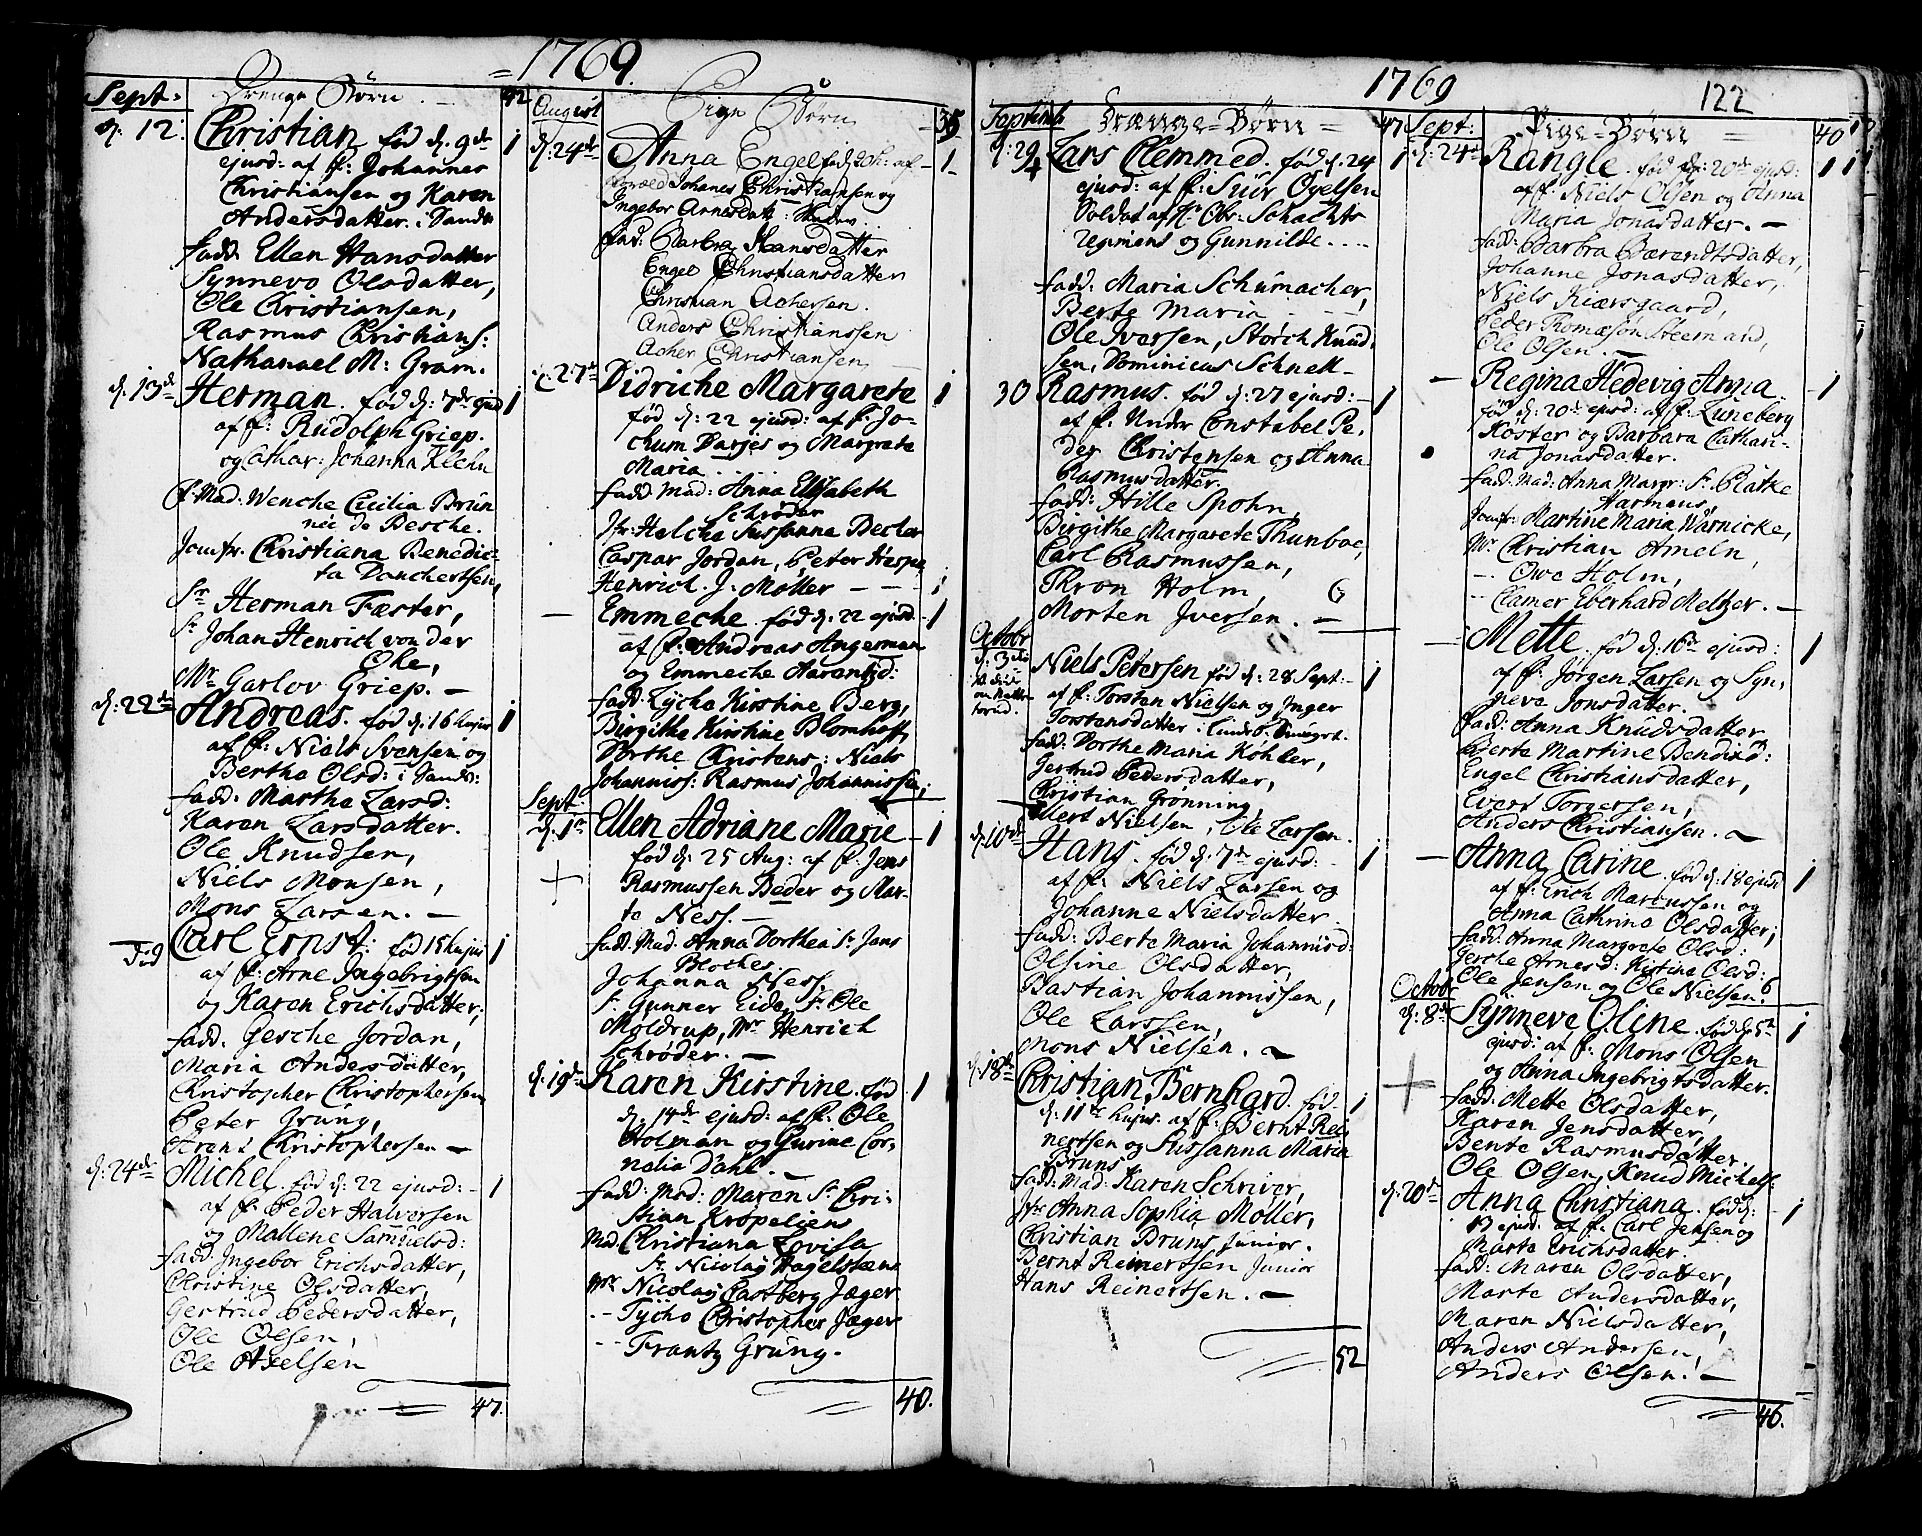 = 1769.
Sept:
Drenge Börn.
42
d: 12.
Christian fød d: 9de
1
ejusd: af f: Johannes
Christiansen og Karen
Andersdatter. i Sandv
fadd. Ellen Hansdatter
Synnevo Olsdatter,
Ole Christiansen,
Rasmus Christians:
Nathanael M: Gram.
d: 13de
Herman. fød d: 7de ejusd
1
af f: Rudolph Griep.
og Cathar: Johanna Klehn
f. Mad. Wenche Cecilia Brun
née de Besche.
Jomfr. Christiana Benedic-
ta Danchertsen,
Sr Herman Fæster,
Sr Johan Henrich von der
Ehe,
Mr Garlov Griep. —
d: 22de
Andreas. fød d: 16 hujus
1
af f: Niels Svensen og
Berthe Olsd: i Sandv:
fadd. Marthe Larsd:
Karen Larsdatter.
Ole Knudsen,
Niels Monsen,
Mons Larsen. —
d:o
Carl Ernst: fød 15 hujus
1
af f: Arne Ingebrigtsen
og Karen Erichsdatter;
fadd. Gesche Jordan,
Maria Andersdatter,
Christopher Christophersen
Peter Grung,
Arent Christophersen —
d: 24de
Michel. fød d: 22 ejusd: -
1
af f: Peder Halversen
og Mallene Samuelsd:
fadd Ingebor Erichsdatter,
Christine Olsdatter,
Gertrud Pedersdatter,
Ole Olsen,
Ole Axelsen
47.
August
Pige Börn
35
d: 24de
Anna Engel fød 20h: af
1
Johanes Christiansen og
Ingebor Arnesdatt:
fad: Barbra Hansdatter
Engel Christiansdatter
Christian Achersen.
Anders Christianssen
Acher Christiansen
d: 27de
Didriche Margarete
1
fød d: 22 ejusd: af f: Jo-
chum Darjes og Margrete
Maria. . . .
fadd. Mad: Anna Elisabeth
Schrøder
Jfr: Helche Sussanne Becher
Caspar Jordan, Peter Hespe,
Henrich. J. Moller — — -
—
Emmeche. fød d: 22 ejusd.
1
af f: Andreas Angerman
og Emmeche Aarentzd:
fadd: Lyche Kirstine Berg,
Birgithe Kirstine Blomhoff,
Dorthe Christens: Niels
Johanniss: Rasmus Johannissen;
Sept:
d: 1te
Ellen Adriane Marie
1
fød d: 25 Aug: af f: Jens
+
Rasmussen Beder og Mar-
te Ness. —
fadd. Mad. Anna Dorthea Sr Jens
Blothes
Johanna Ness.
Sr Gunner Eide, Sr Ole
Moldrup, Mr Henrich
Schrøder. —
d: 19de
Karen Kirstine. fød
1
d: 14de ejusd: af f: Ole
Holman og Gurine Cor-
nelia Dahl. —
fadd: Mad: Maren Sr Chri-
stian Krøpeliens
Mad. Christiana Lovisa
Sr Nicolaÿ Hagelstæns
Mr Nicolaÿ Castberg Jæger
-- Tÿcho Christopher Jæger
-- Frantz Grung.
40.
1769
122
Septemb
Drænge=Börn =
47
d: 29
Lars Clemmed. fød d: 24
1
ejusd: af f: Siur Ogelsen
Soldat af Hr Obr: Schachts
regimens og Gunnilde. . . .
fadd: Maria Schumacher,
Berte Maria
Ole Iversen, Storch Knud-
sen, Dominicus Schnell-
30
Rasmus. fød d: 27 ejusd: -
1
af f. Under Constabel Pe-
der Christensen og Anna
Rasmusdatter.
fadd: Hille Spohn,
Birgithe Margarete Thunboe,
Carl Rasmussen,
Thron Holm,
Morten Iversen. —
Octobr
d: 3die
Niels Petersen fød d: 28 Sept: -
1
af f: Torsten Nielsen og Inger
Torstensdatter.
fadd: Dorthe Maria Köhler,
Gertrud Pedersdatter,
Christian Grønning,
Ellert Nielsen, Ole Larsen.
d: 10de
Hans. fød d: 7de ejusd: -
1
af f: Niels Larsen og
Johanne Nielsdatter
fadd: Berte Maria Johannisd:
Olsine Olsdatter,
Bastian Johannissen,
Ole Larssen,
Mons Nielsen. —
d: 18de
Christian Bernhard. fød.
1
d: 11te hujus. af f: Bernt Rei-
nertsen og Sussanna Maria
Bruns
fadd: Mad: Karen Schriver,
Jfr Anna Sophia Möller,
Christian Bruns Junior.
Bernt Reinertsen Junior
Hans Reinertsen. —
52
Sept:
Pige=Börn =
40
d: 24de
Rangle. fød d: 20de ejusd:
1
af f: Niels Olsen og Anna
Maria Jonasdatter. —
fadd: Barbra Bærendtsdatter,
Johanne Jonasdatter,
Niels Kiærsgaard,
Peder Thomæson Steenvand,
Ole Olsen. —
—
Regina Hedevig Anna
1
fød d: 20de ejusd: af f: Luneberg
Köster og Barbara Cathari-
na Jonasdatter.
fadd: Mad: Anna Margr: Sr Platke
Harmens,
Jomfr: Martine Maria Warnicke,
Mr Christian Ameln,
-- Owe Holm,
-- Clamer Eberhard Meltzer. —
—
Mette. fød d: 16de ejusd:
1
af f: Jørgen Larsen og Syn-
neve Jonsdatter.
fadd: Anna Knudsdatter
Berte Martine Bendixd:
Engel Christiansdatter,
Evert Torgersen,
Anders Christiansen. —
—
Anna Carine. fød d: 18 ejusd
1
af f: Erich Marcussen og
Anna Cathrine Olsdatter;
fadd: Anna Margrete Olsd:
Gerche Arnesd: Kistine Olsd:
Ole Jensen og Ole Nielsen. 6
Octobr
d: 8de
Synneve Oline. fød d: 5te
1
ejusd: af f: Mons Olsen
+
og Anna Ingebrigtsdatter.
fadd: Mette Olsdatter,
Karen Jensdatter,
Bente Rasmusdatter,
Ole Olsen, Knud Michels:
d: 20de
Anna Christiana. fød d:
1
19 ejusd: af f: Carl Jensen og
Marte Erichsdatter.
fadd: Maren Olsdatter,
Marte Andersdatter,
Maren Nielsdatter,
Anders Andersen,
Anders Olsen. —
46.